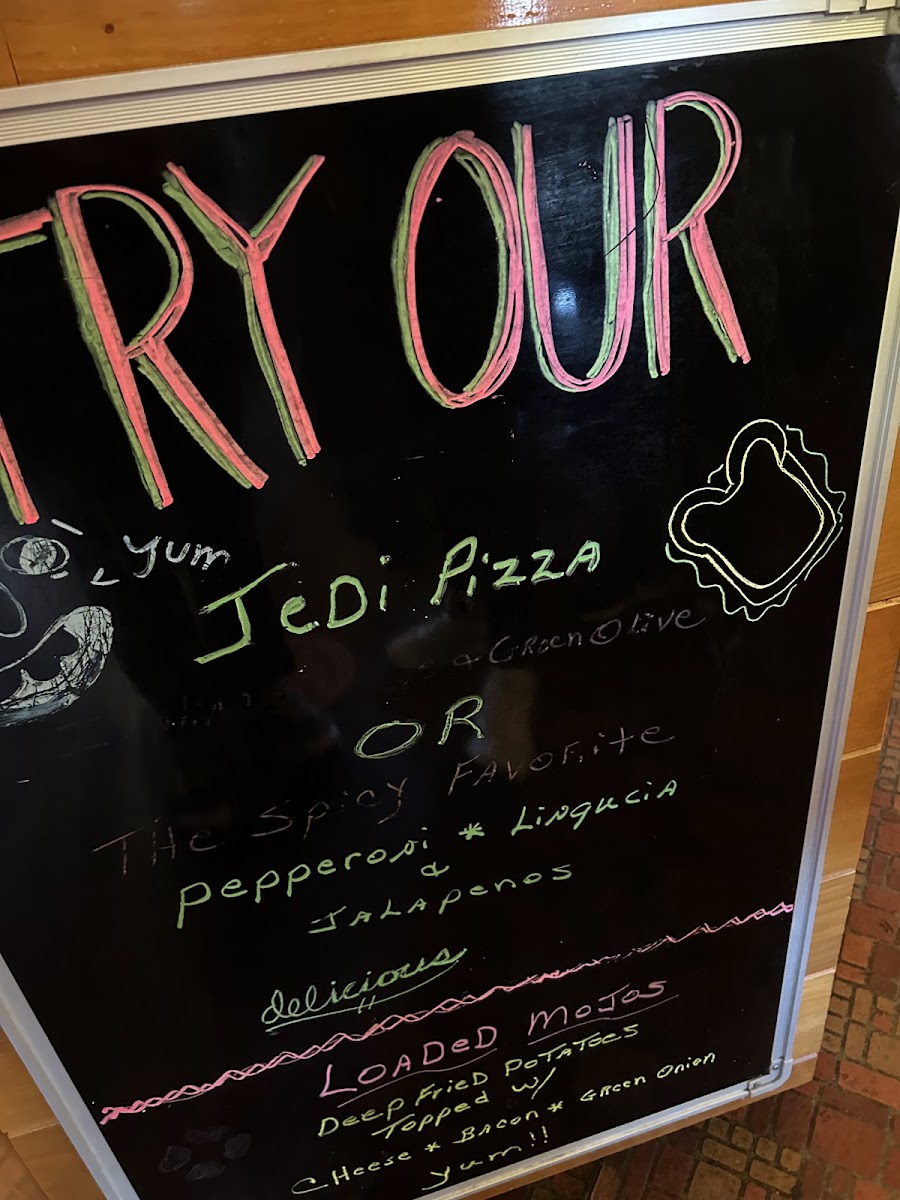 TRY OUR
Yum
JeDi Pizza
& Green Olive
OR
THe Spicy FAVOrite
pepperoni * LinguciA
&
JALApenos
delicious
LOADeD MOJOS
Deep Fried POTATOes
Topped w/
CHeese * BAcon * Green Onion
yum!!